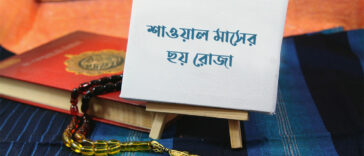 শাওয়াল মাসের
ছয় রোজা